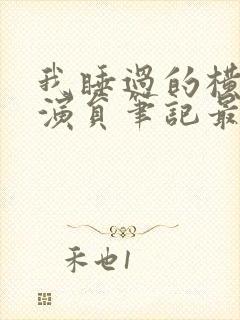 我睡過的橫
演員筆記最
禾也1